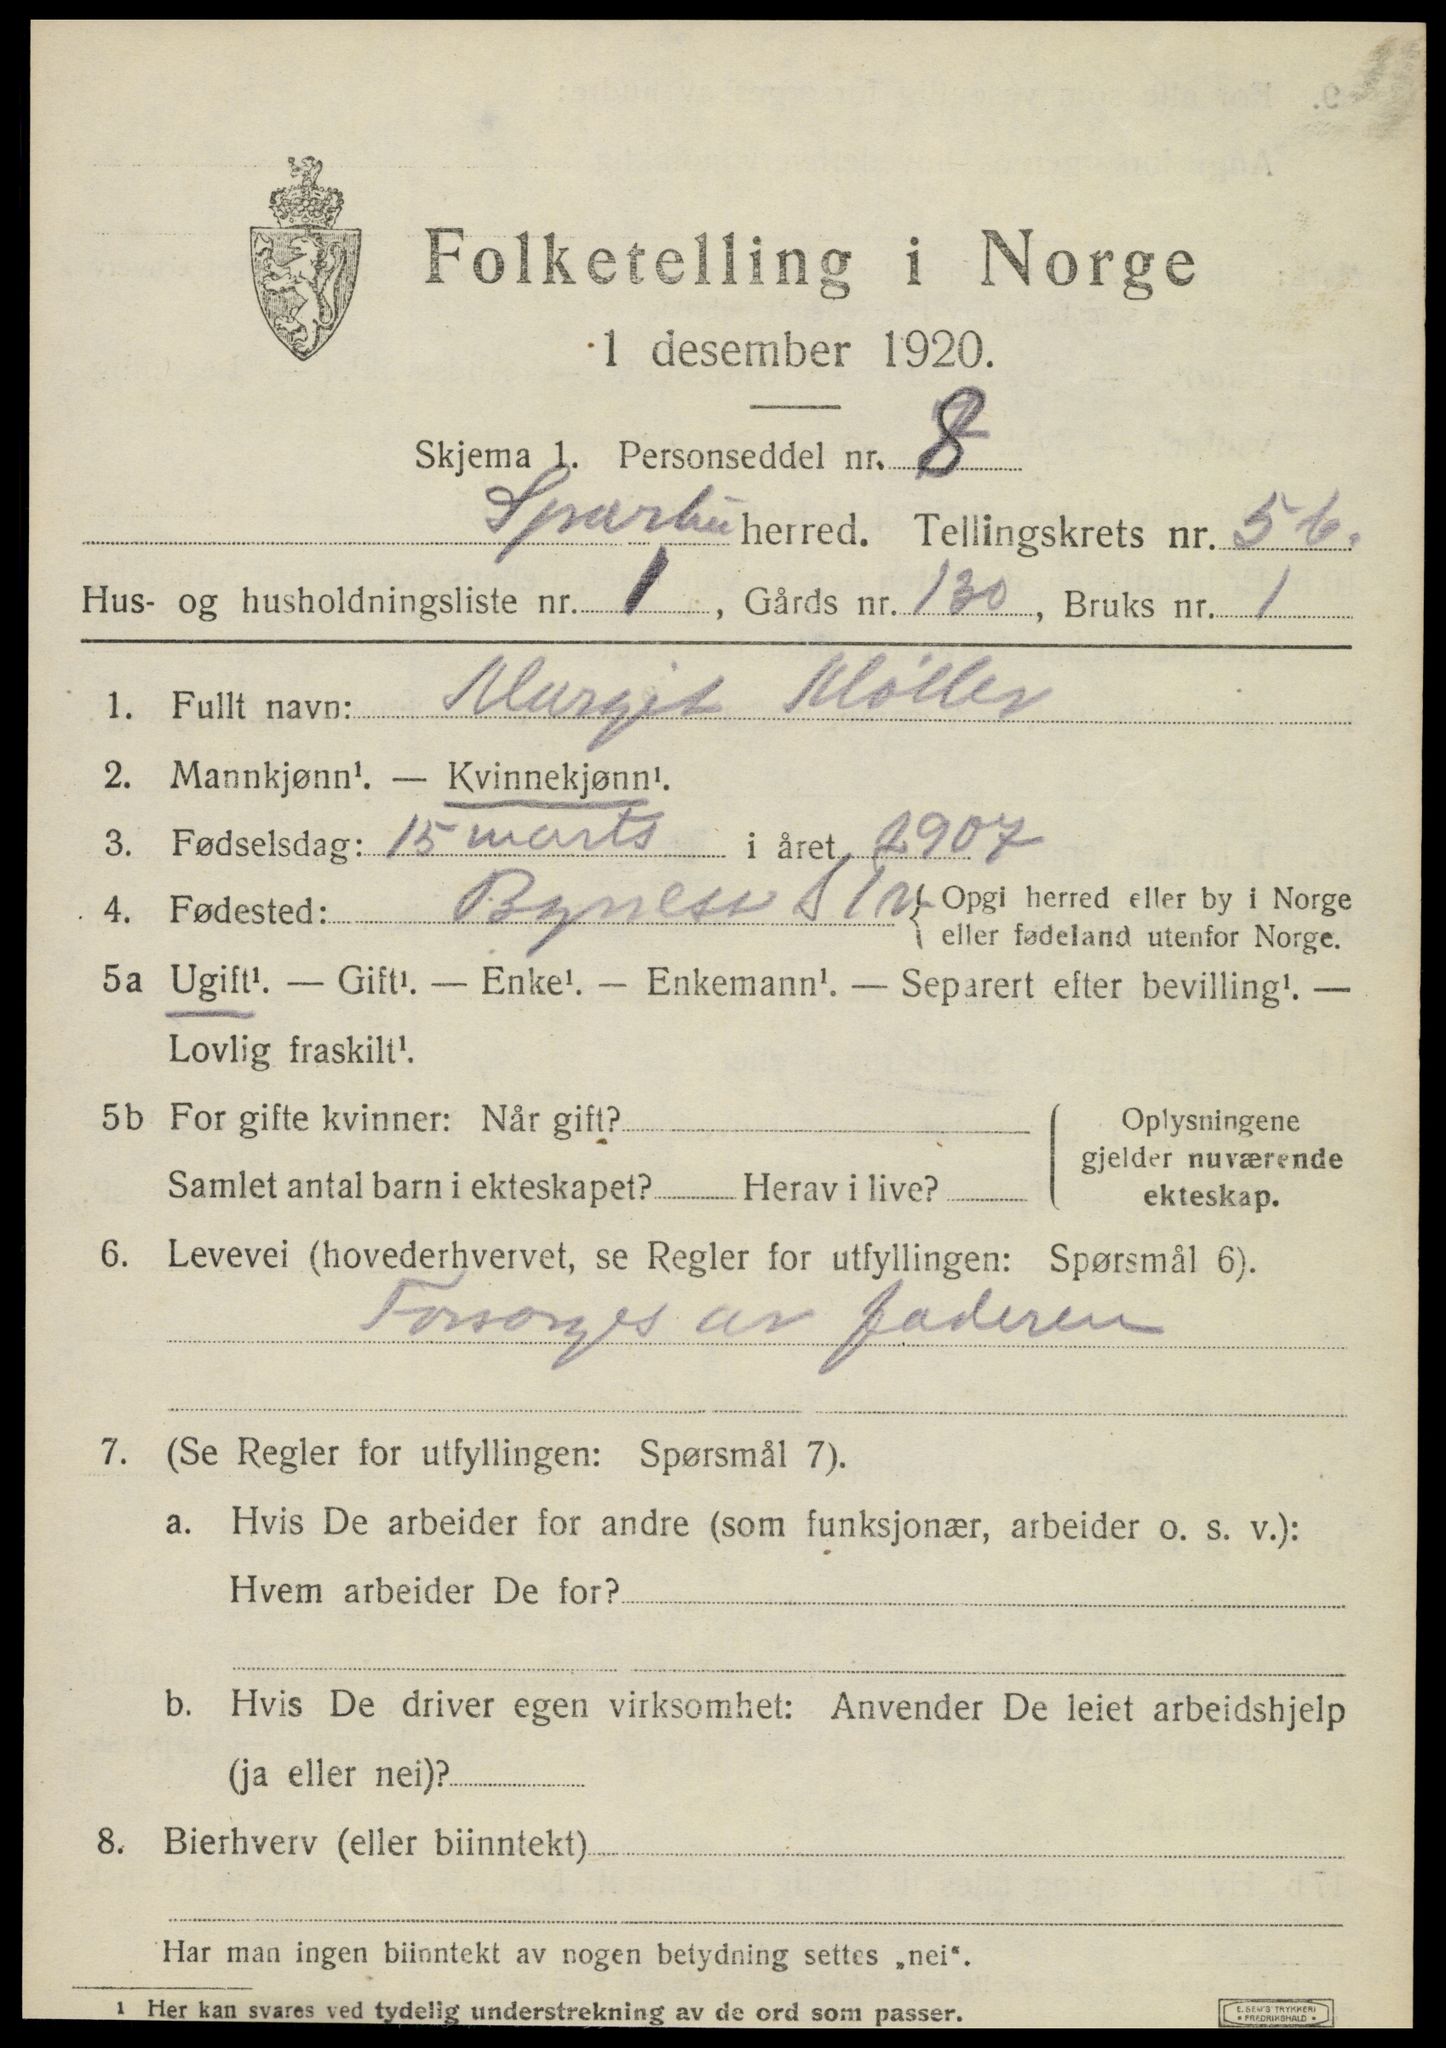 Folketelling i Norge
1 desember 1920.
Skjema 1. Personseddel nr. 8
Sparbu herred. Tellingskrets nr. 5 b.
Hus- og husholdningsliste nr. 1, Gårds nr. 130, Bruks nr. 1
1. Fullt navn: Margit Møller
2. Mannkjønn¹. — Kvinnekjønn¹.
3. Fødselsdag: 15 marts i året 1907
4. Fødested: Byneset S. Tr { Opgi herred eller by i Norge
eller fødeland utenfor Norge.
5a Ugift¹. — Gift¹. — Enke¹. — Enkemann¹. — Separert efter bevilling¹. —
Lovlig fraskilt¹.
5b For gifte kvinner: Når gift?
Samlet antal barn i ekteskapet? Herav i live?
Oplysningene
gjelder nuværende
ekteskap.
6. Levevei (hovederhvervet, se Regler for utfyllingen: Spørsmål 6).
Forsørges av faderen
7. (Se Regler for utfyllingen: Spørsmål 7).
a. Hvis De arbeider for andre (som funksjonær, arbeider o. s. v.):
Hvem arbeider De for?
b. Hvis De driver egen virksomhet: Anvender De leiet arbeidshjelp
(ja eller nei)?
8. Bierhverv (eller biinntekt)
Har man ingen biinntekt av nogen betydning settes „nei“.
1 Her kan svares ved tydelig understrekning av de ord som passer.
E. SEM'S TRYKKERI
* FREDRIKSHALD *